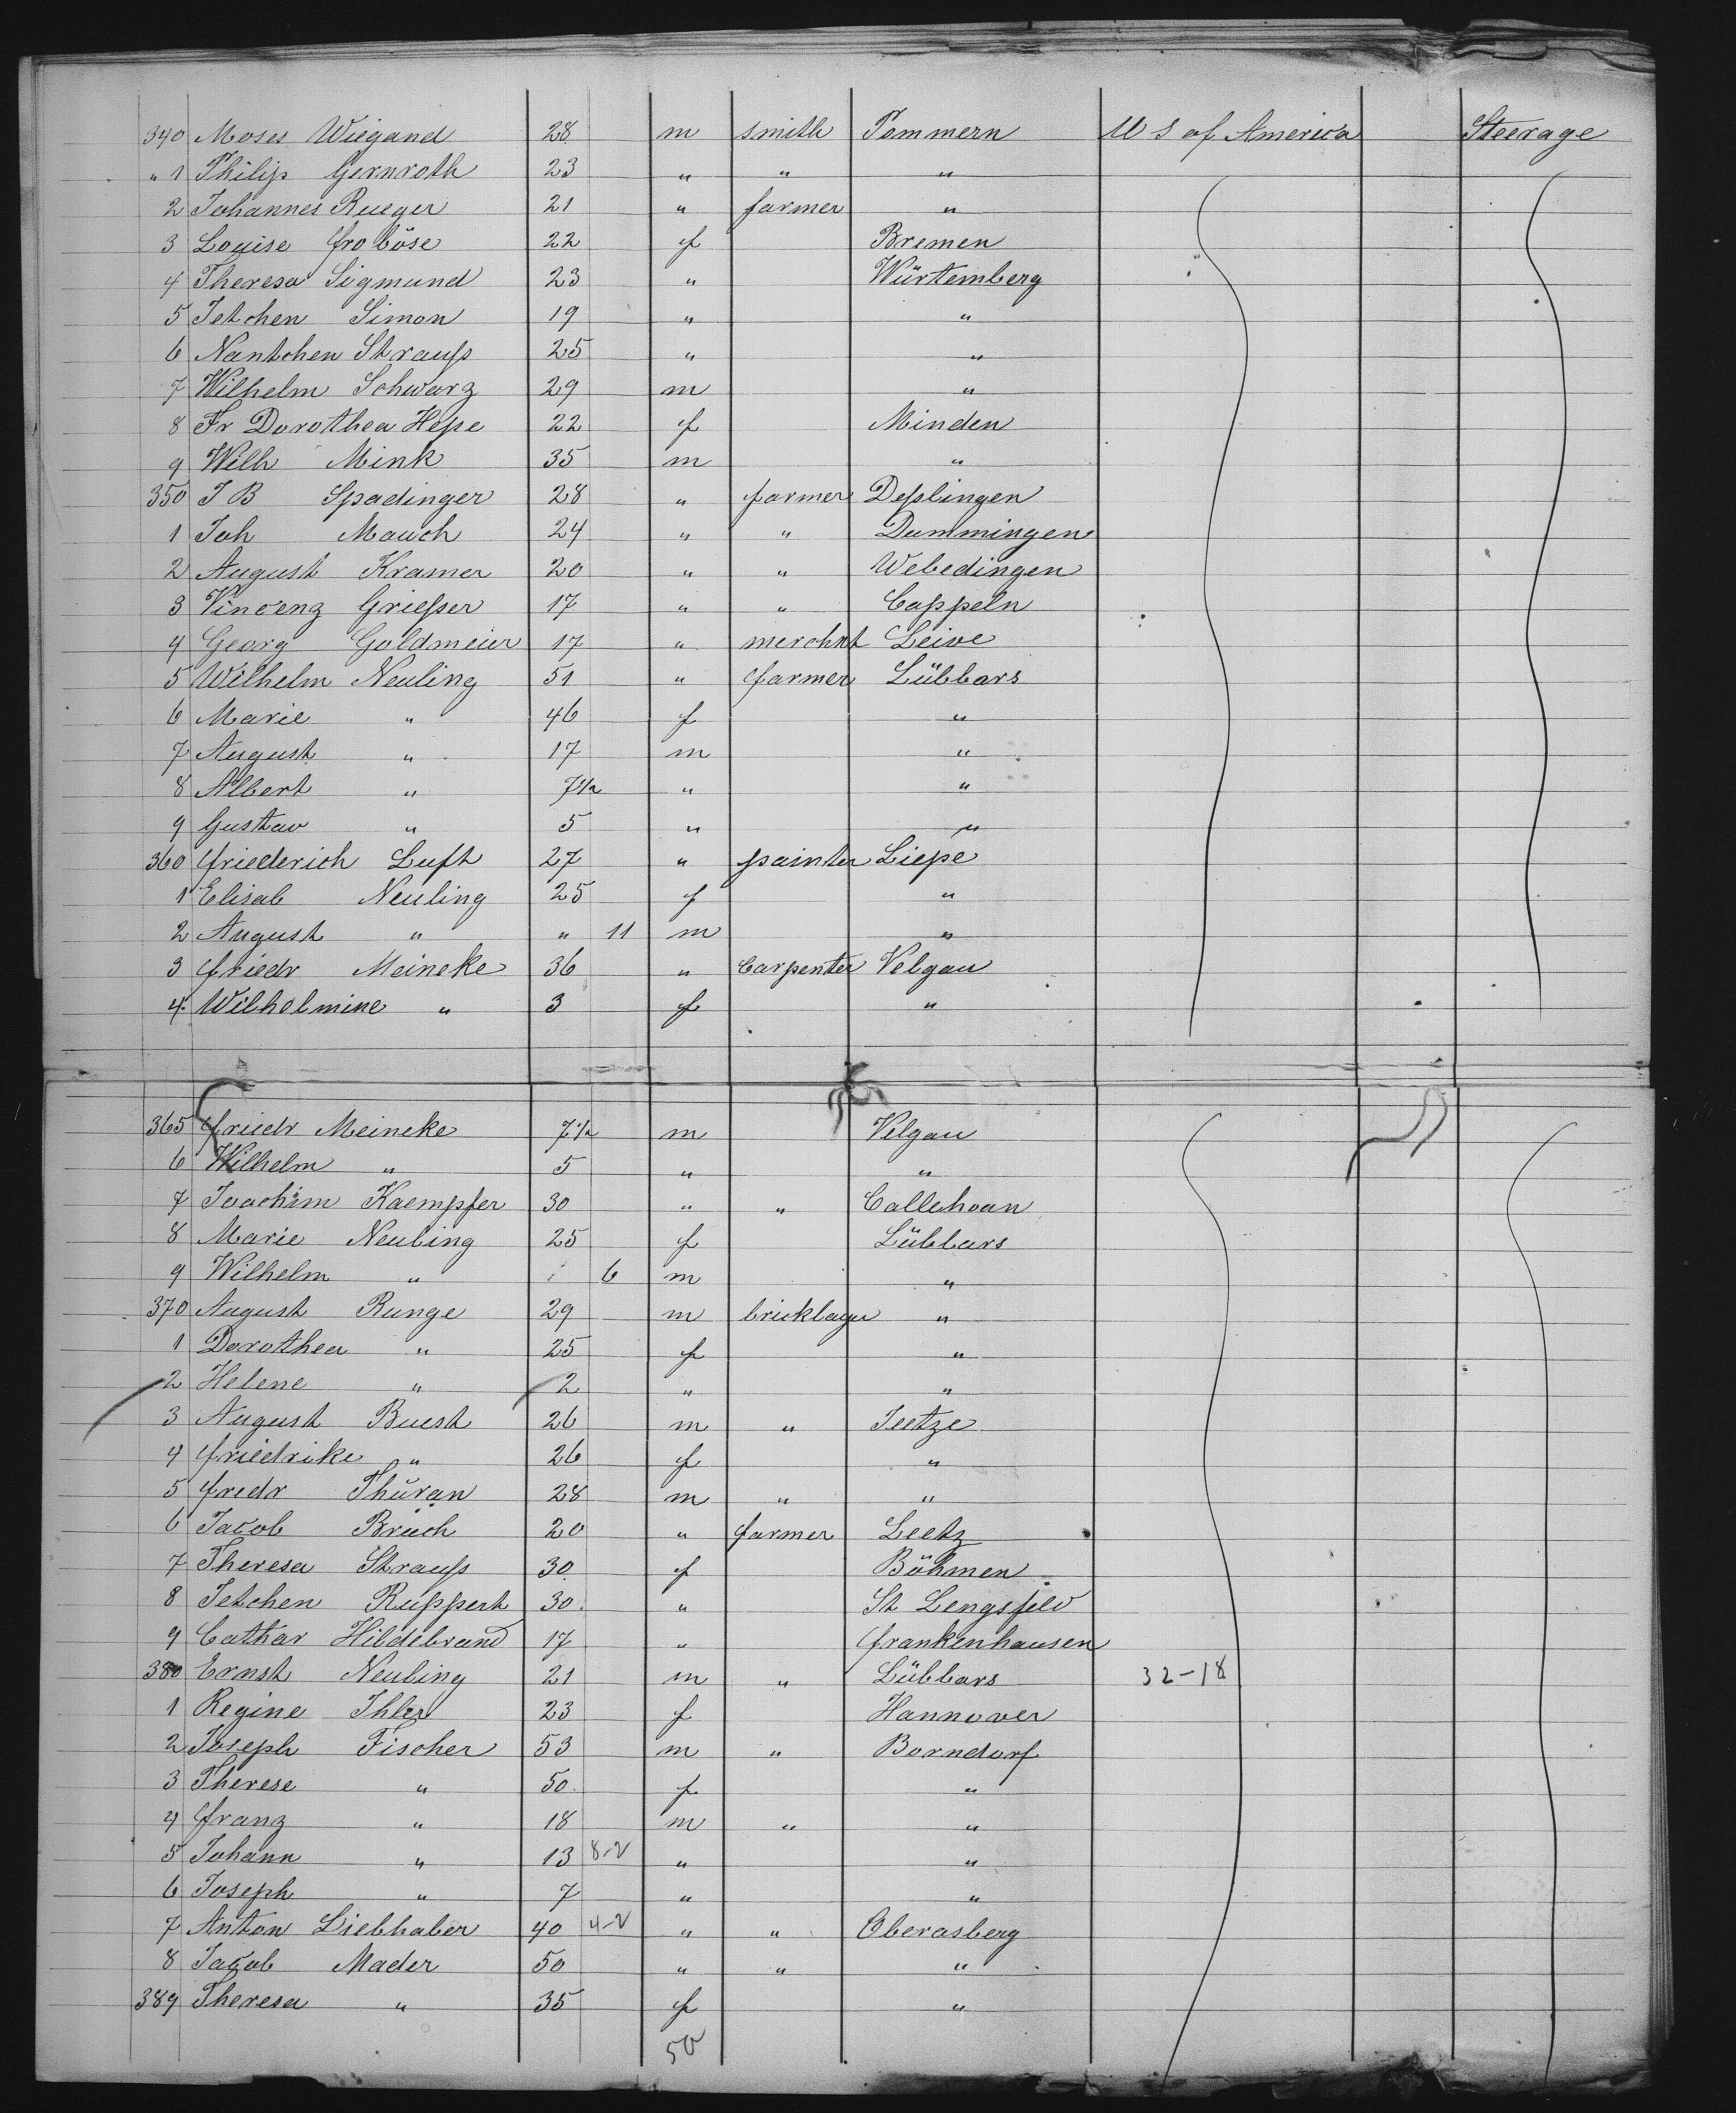 340 Moses Wiegand 28 m smith Pommern U S of America Steerage
" 1 Philip Gernroth 23 " " "
2 Johannes Rueger 21 " farmer "
3 Louise Froböse 22 f Bremen
4 Theresa Sigmund 23 " Würtemberg
5 Jetchen Simon 19 " "
6 Nantchen Strauß 25 " "
7 Wilhelm Schwarz 29 m "
8 Fr Dorothea Heße 22 f Minden
9 Wilh Mink 35 m "
350 J B Spadinger 28 " farmer Deßlingen
1 Joh Mauch 24 " " Dummingen
2 August Kramer 20 " " Webedingen
3 Vincenz Grießer 17 " " Cappeln
4 Georg Goldmeier 17 " merchnt Leive
5 Wilhelm Neuling 51 " farmer Lübbars
6 Marie " 46 f "
7 August " 17 m "
8 Albert " 7 1/2 " "
9 Gustav " 5 " "
360 Friederich Luft 27 " painter Liepe
1 Elisab Neuling 25 f "
2 August " " 11 m "
3 Friedr Meineke 36 " Carpenter Velgau
4 Wilhelmine " 3 f "
365 Friedr Meineke 7 1/2 m Velgau
6 Wilhelm " 5 " "
7 Joachim Kaempfer 30 " " Callehoan
8 Marie Neuling 25 f Lübbars
9 Wilhelm " 6 m "
370 August Runge 29 m bricklayer "
1 Dorothea " 25 f "
2 Helene " 2 " "
3 August Buest 26 m " Jeetze
4 Friedrike " 26 f "
5 Fredr Thüran 28 m " "
6 Jacob Brüch 20 " farmer Leetz
7 Theresa Strauß 30 f Böhmen
8 Jetchen Ruppert 30 " St Lengsfeld
9 Cathar Hildebrand 17 " Frankenhausen
380 Ernst Neuling 21 m " Lübbars 32-18
1 Regine Ihler 23 f Hannover
2 Joseph Fischer 53 m " Borndorf
3 Therese " 50 f "
4 Franz " 18 m " "
5 Johann " 13 8-V " "
6 Joseph " 7 " "
7 Anton Liebhaber 40 4-V " " Oberasberg
8 Jacob Mader 50 " " "
389 Theresa " 35 f "
50